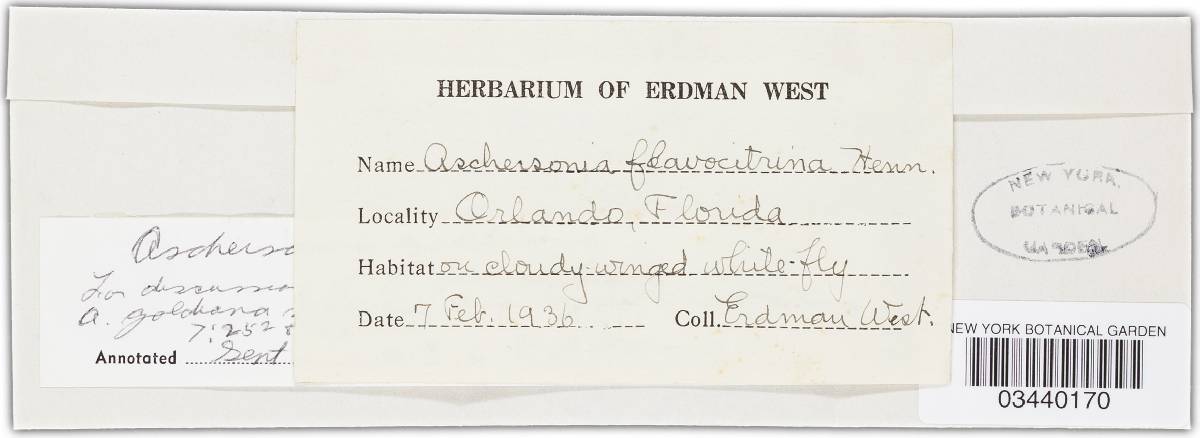 HERBARIUM OF ERDMAN WEST
Name Aschersonia flavocitrina Henn.
Locality Orlando, Florida
Habitat on cloudy-winged white-fly
Date 7 Feb. 1936 Coll. Erdman West.
Ascherso
For discussio
A. goldiana
7:252
Annotated Sent
NEW YORK
BOTANICAL
GARDEN
NEW YORK BOTANICAL GARDEN
03440170